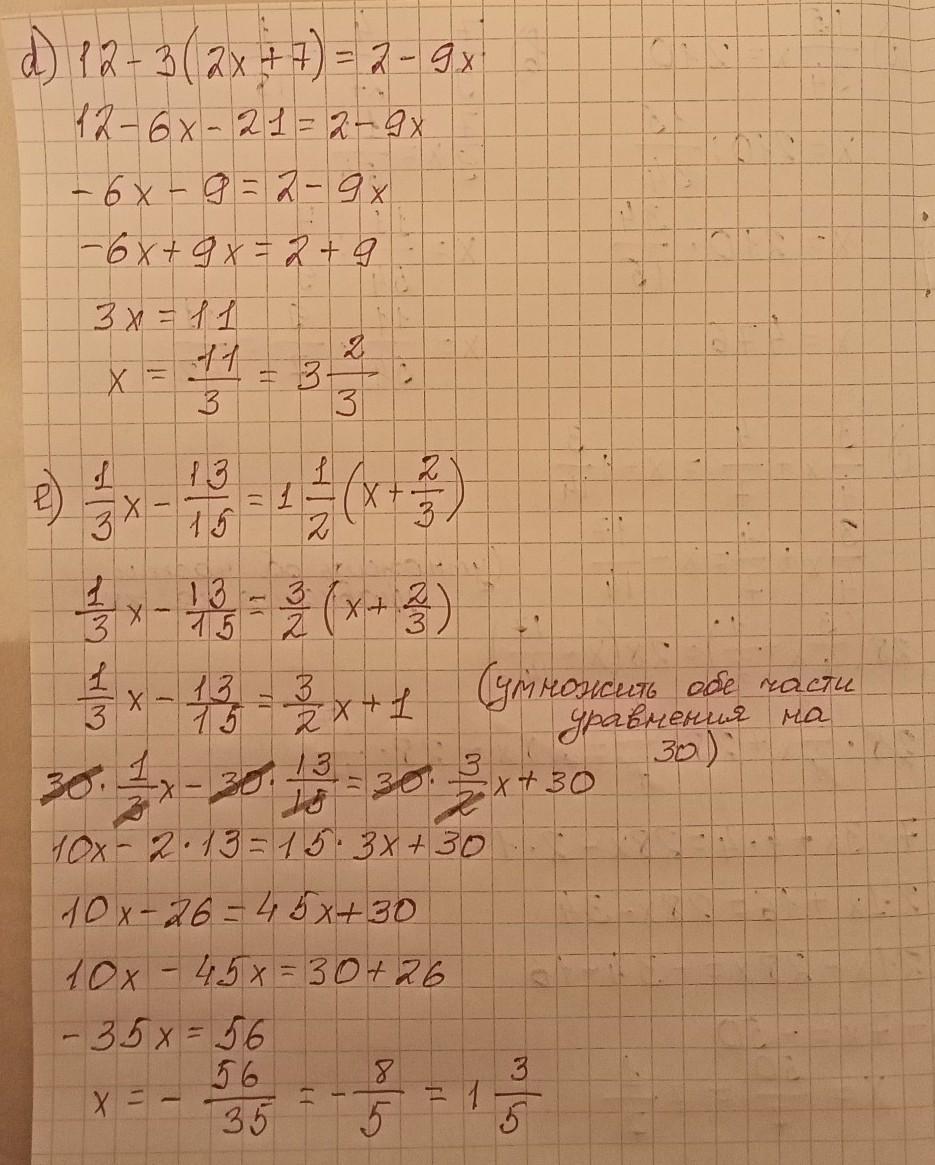 d) 12 - 3(2x + 7) = 2 - 9x
12 - 6x - 21 = 2 - 9x
- 6x - 9 = 2 - 9x
- 6x + 9x = 2 + 9
3x = 11
x = 11/3 = 3 2/3
e) 1/3 x - 13/15 = 1 1/2 (x + 2/3)
1/3 x - 13/15 = 3/2 (x + 2/3)
1/3 x - 13/15 = 3/2 x + 1 (умножить обе части
уравнения на
30)
30 · 1/3 x - 30 · 13/15 = 30 · 3/2 x + 30
10x - 2 · 13 = 15 · 3x + 30
10x - 26 = 45x + 30
10x - 45x = 30 + 26
- 35x = 56
x = - 56/35 = - 8/5 = 1 3/5